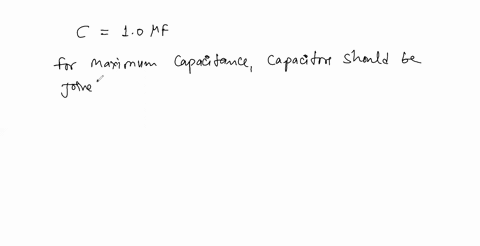 C = 1.0 MF
for maximum capacitance, capacitors should be
joine